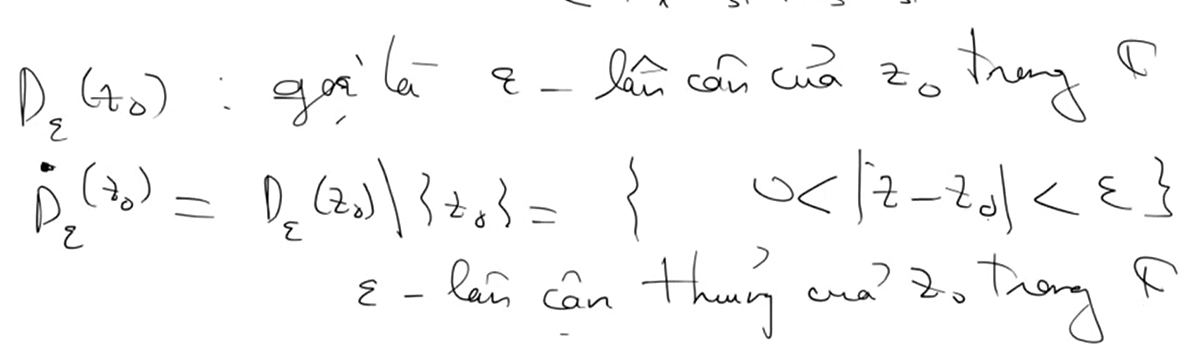 D_ε(z₀) : gọi là ε – lân cận của z₀ trong ℂ
Ḋ_ε(z₀) = D_ε(z₀) \ {z₀} = { 0 < |z – z₀| < ε }
ε – lân cận thủng của z₀ trong ℂ